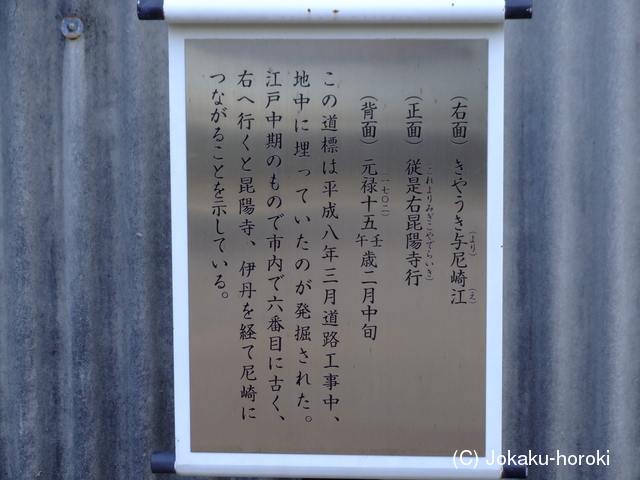 (右面) きやうき与(より)尼崎江(え)
(正面) 従是右昆陽寺行(これよりみぎこやでらいき)
(背面) 元禄十五(一七〇二)壬午歳二月中旬
この道標は平成八年三月道路工事中、
地中に埋っていたのが発掘された。
江戸中期のもので市内で六番目に古く、
右へ行くと昆陽寺、伊丹を経て尼崎に
つながることを示している。
(C) Jokaku-horoki